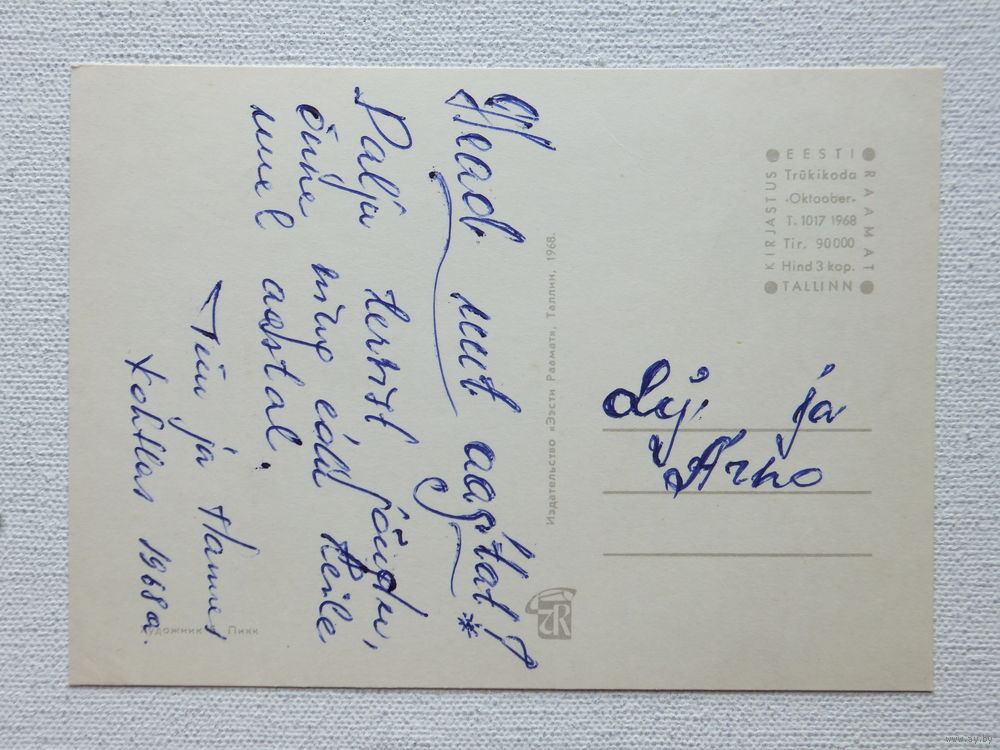 Head uut aastat!
Palju tervist, jõudu,
õnne ning edu teile
uuel aastal.
Tiiu ja Hannes
Kohtlas 1968 a.
Художник Пикк
Издательство «Ээсти Раамат», Таллин, 1968.
EESTI RAAMAT
KIRJASTUS TALLINN
Trükikoda
«Oktoober»
T. 1017 1968
Tir. 90000
Hind 3 kop.
ja
Arno
www.ay.by